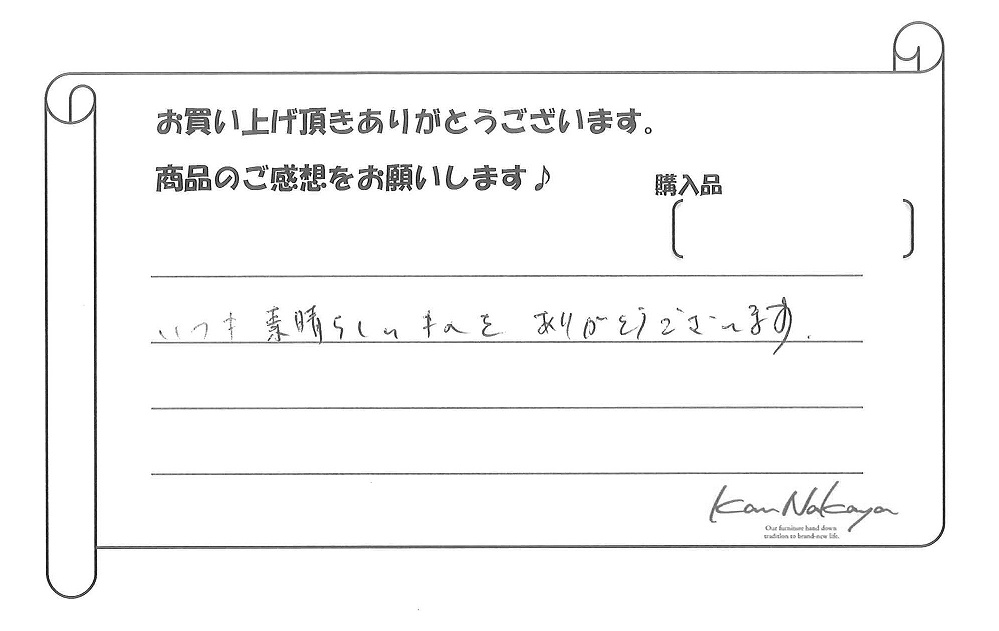 お買い上げ頂きありがとうございます。
商品のご感想をお願いします♪
購入品
いつも素晴らしいものを ありがとうございます.
Kan Nakaya
Our furniture hand down
tradition to brand-new life.